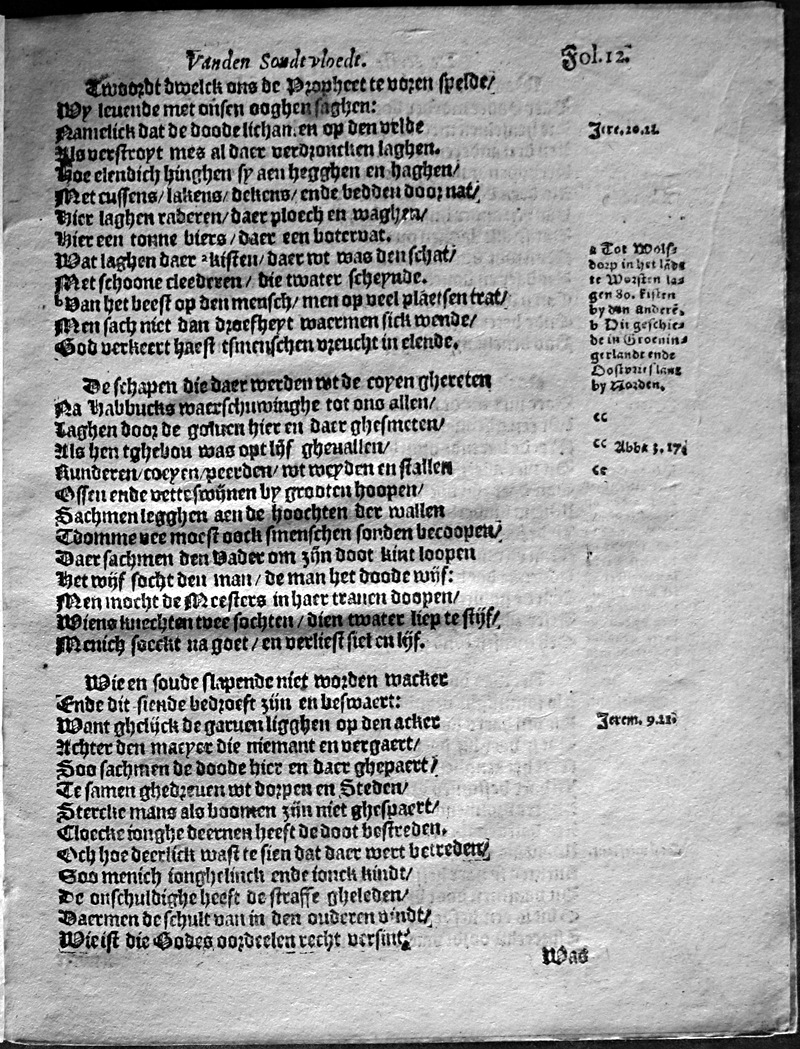 Vanden Sondtvloedt.
Fol. 12.
Twoordt dwelck ons de Propheet te voren spelde/
Wy levende met onsen ooghen saghen:
Namelick dat de doode lichamen op den velde
Als verstroyt mes al daer verdroncken laghen.
Hoe elendich hinghen sy aen hegghen en haghen/
Met cussens/ lakens/ dekens/ ende bedden door nat/
Hier laghen raderen/ daer ploech en waghen/
Hier een tonne biers/ daer een botervat.
Wat laghen daer ᵃkisten/ daer wt was den schat/
Met schoone cleederen/ die twater scheynde.
ᵇVan het beest op den mensch/ men op veel plaetsen trat/
Men sach niet dan droefheyt waermen sick wende/
God verkeert haest tsmenschen vreucht in elende.
De schapen die daer werden wt de coyen ghereten
Na Habbucks waerschuwinghe tot ons allen/
Laghen door de goluen hier en daer ghesmeten/
Als hen tghebou was opt lijf ghevallen/
Runderen/ coeyen/ peerden/ wt weyden en stallen
Ossen ende vette swijnen by grooten hoopen/
Sachmen legghen aen de hoochten der wallen
Tdomme vee moest oock smenschen sonden becoopen/
Daer sachmen den Vader om zijn doot kint loopen
Het wijf socht den man/ de man het doode wijf:
Men mocht de Meesters in haer tranen doopen/
Wiens knechten twee sochten/ dien twater liep te stijf/
Menich soeckt na goet/ en verliest siel en lijf.
Wie en soude slapende niet worden wacker
Ende dit siende bedroeft zijn en beswaert:
Want ghelijck de garuen ligghen op den acker
Achter den maeyer die niemant en vergaert/
Soo sachmen de doode hier en daer ghepaert/
Te samen ghedreuen wt dorpen en Steden/
Stercke mans als boomen zijn niet ghespaert/
Cloecke ionghe deernen heeft de doot bestreden.
Och hoe deerlick wast te sien dat daer wert betreden/
Soo menich ionghelinck ende ionck kindt/
De onschuldighe heeft de straffe gheleden/
Daermen de schult van in den ouderen vindt/
Wie ist die Godes oordeelen recht versint/
Was
a Tot Wolfs
dorp in het lãde
te Wursten la=
gen 80. kisten
by den anderẽ.
b Dit geschie=
de in Groenin=
gerlandt ende
Oostvrieslant
by Norden.
“
“ Abba 3. 17
“
Jerem. 9.22